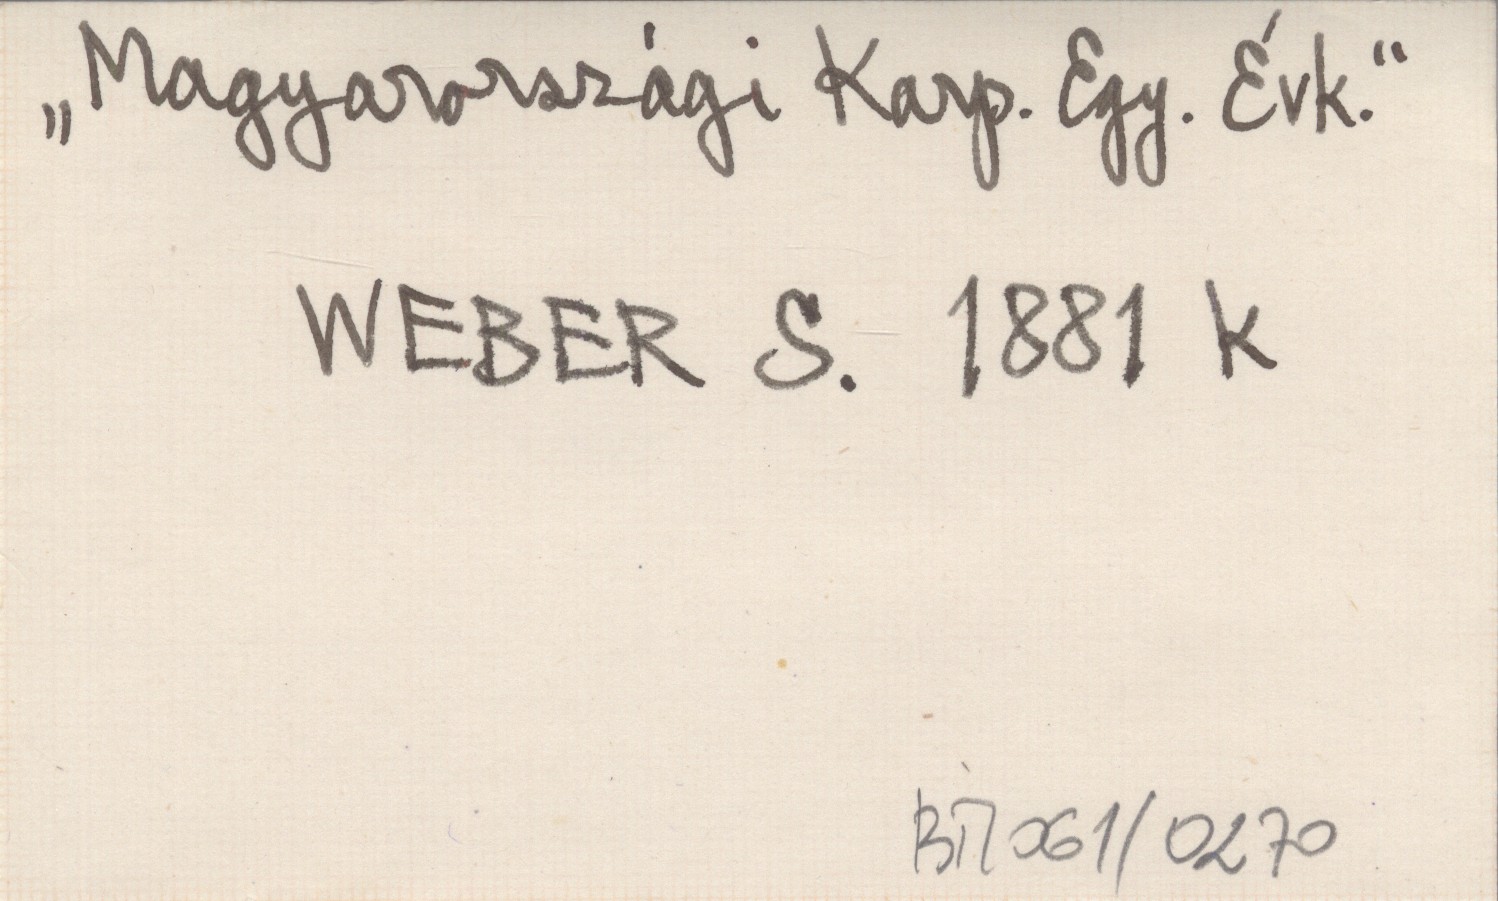 „Magyarországi Karp. Egy. Évk.“
WEBER S. 1881 k
BTT061/0270